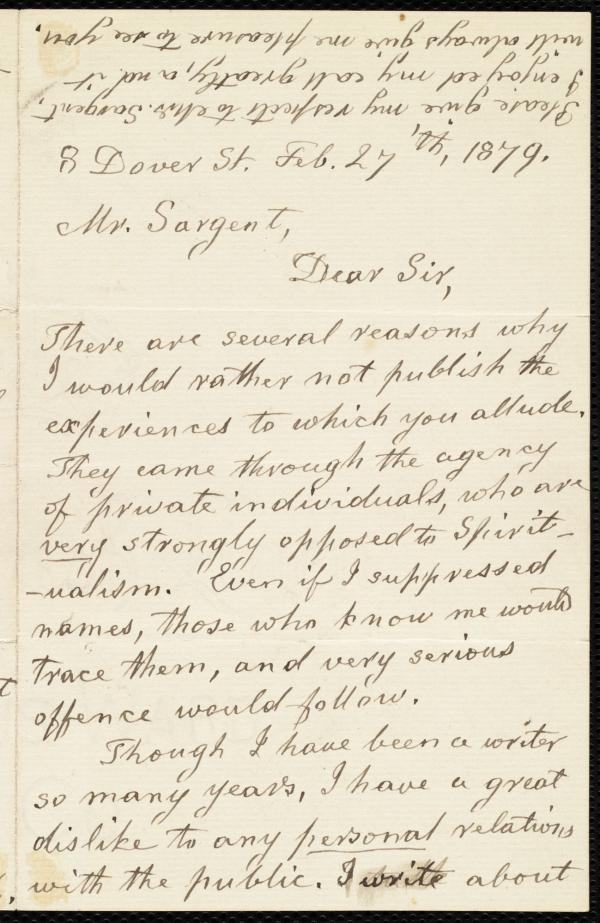 8 Dover St. Feb. 27'th, 1879.
Mr. Sargent,
Dear Sir,
There are several reasons why
I would rather not publish the
experiences to which you allude.
They came through the agency
of private individuals, who are
very strongly opposed to Spirit-
-ualism. Even if I suppressed
names, those who know me would
trace them, and very serious
offence would follow.
Though I have been a writer
so many years, I have a great
dislike to any personal relations
with the public. I write about
Please give my respects to Mrs. Sargent.
I enjoyed my call greatly, and it
will always give me pleasure to see you.